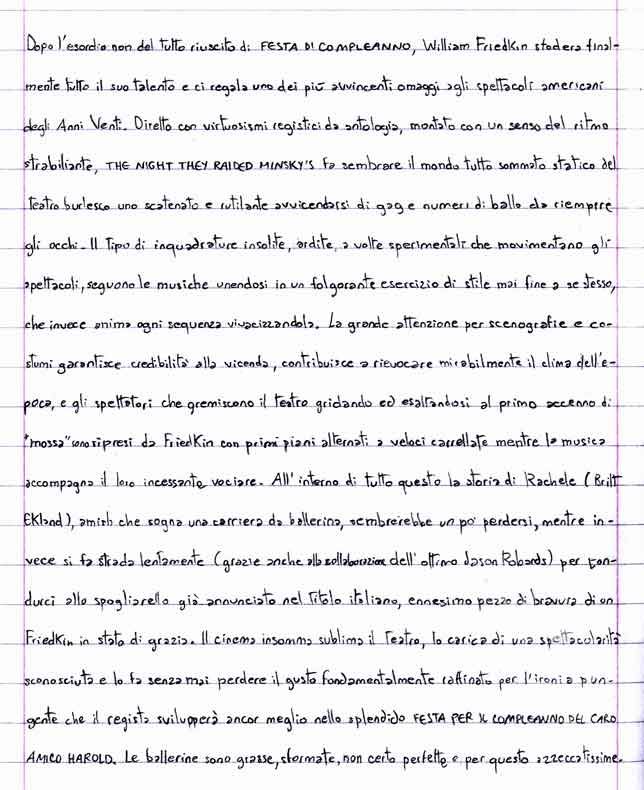 Dopo l'esordio non del tutto riuscito di FESTA DI COMPLEANNO, William Friedkin sfodera final-
mente tutto il suo talento e ci regala uno dei più avvincenti omaggi agli spettacoli americani
degli Anni Venti. Diretto con virtuosismi registici da antologia, montato con un senso del ritmo
strabiliante, THE NIGHT THEY RAIDED MINSKY'S fa sembrare il mondo tutto sommato statico del
teatro burlesco uno scatenato e rutilante avvicendarsi di gag e numeri di ballo da riempire
gli occhi. Il tipo di inquadrature insolite, ardite, a volte sperimentali che movimentano gli
spettacoli, seguono le musiche unendosi in un folgorante esercizio di stile mai fine a se stesso,
che invece anima ogni sequenza vivacizzandola. La grande attenzione per scenografie e co-
stumi garantisce credibilità alla vicenda, contribuisce a rievocare mirabilmente il clima dell'e-
poca, e gli spettatori che gremiscono il teatro gridando ed esaltandosi al primo accenno di
"mossa" sono ripresi da Friedkin con primi piani alternati a veloci carrellate mentre la musica
accompagna il loro incessante vociare. All'interno di tutto questo la storia di Rachele (Britt
Ekland), amish che sogna una carriera da ballerina, sembrerebbe un po' perdersi, mentre in-
vece si fa strada lentamente (grazie anche alla collaborazione dell'ottimo Jason Robards) per con-
durci allo spogliarello già annunciato nel titolo italiano, ennesimo pezzo di bravura di un
Friedkin in stato di grazia. Il cinema insomma sublima il teatro, lo carica di una spettacolarità
sconosciuta e lo fa senza mai perdere il gusto fondamentalmente raffinato per l'ironia pun-
gente che il regista svilupperà ancor meglio nello splendido FESTA PER IL COMPLEANNO DEL CARO
AMICO HAROLD. Le ballerine sono grasse, sformate, non certo perfette e per questo azzeccatissime.